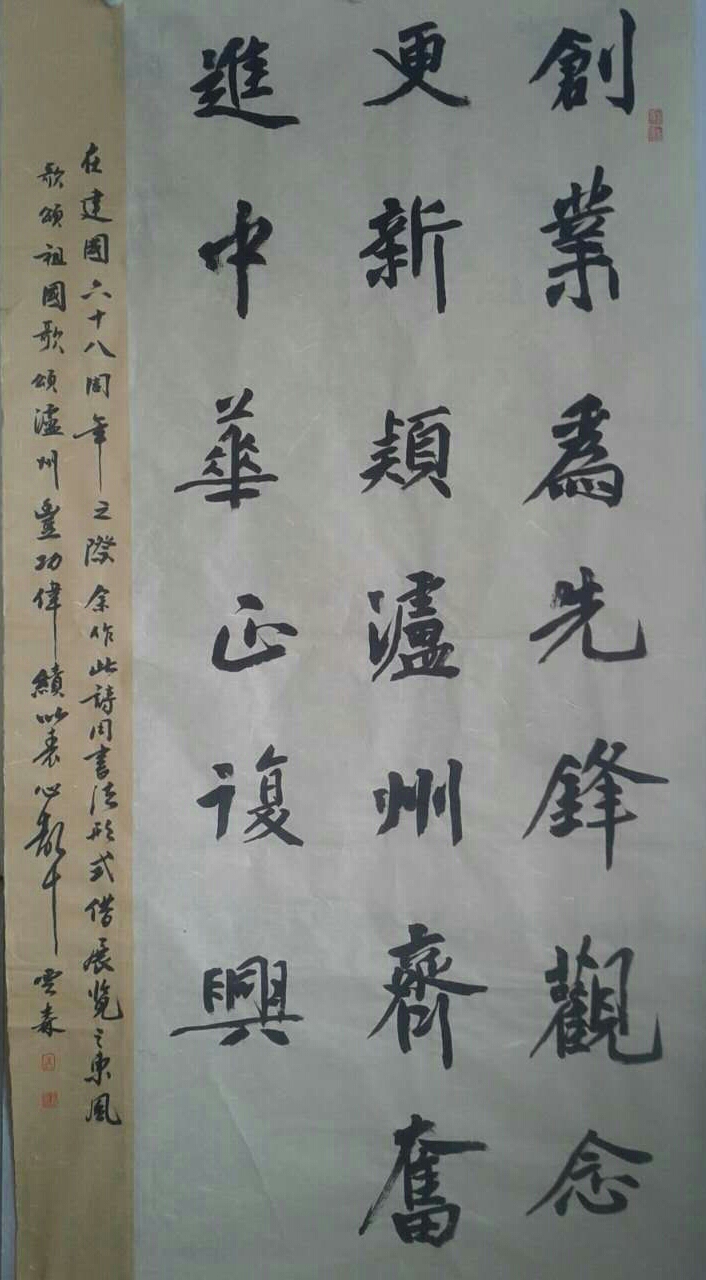 創業爲先鋒觀念
更新頴瀘州齊奮
進中華正復興
在建國六十八周年之際余作此詩用書法形式借展览之東風
歌頌祖國歌頌瀘州豐功偉績以表心